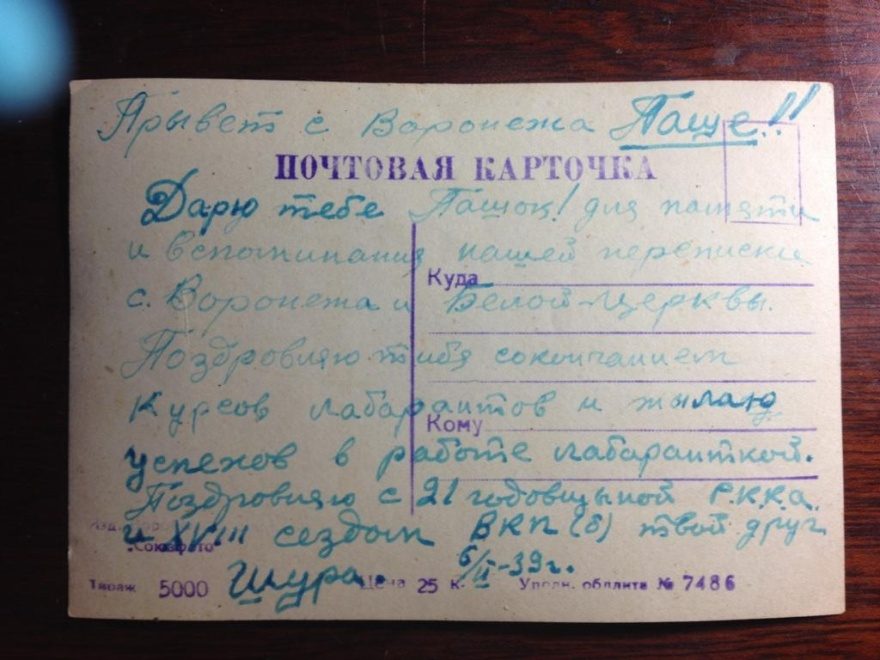 Прывет с Воронежа Паще!!
ПОЧТОВАЯ КАРТОЧКА
Дарю тебе Пащок! для памяти
и вспоминания нашей переписки
Куда
с. Воронежа и Белой-Церквы.
Поздровляю тибя сокончанием
Курсов лабарантов и жылаю
Кому
успехов в работе лабаранткой.
Поздровляю с 21 годовщыной Р.К.К.А.
и XVIII сездом ВКП(б) твой друг
"Союзфото"
Шура. 6/II-39г.
Тираж 5000 Цена 25 к. Уполн. обллита № 7486